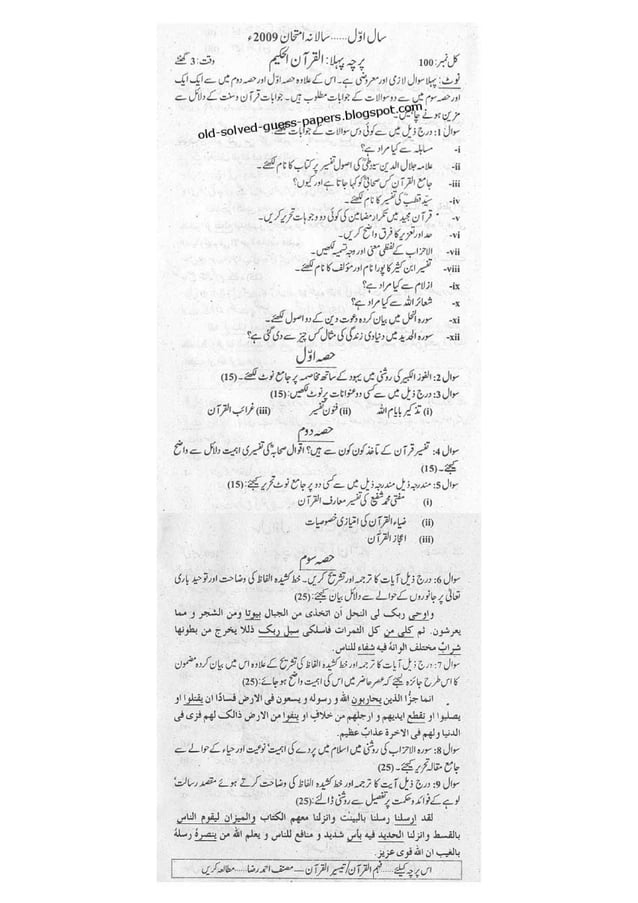 سال اوّل......سالانہ امتحان 2009ء
کل نمبر: 100 پرچہ پہلا: القرآن الحکیم وقت: 3 گھنٹے
نوٹ: پہلا سوال لازمی اور معروضی ہے۔ اس کے علاوہ حصہ اوّل اور حصہ دوم میں سے ایک ایک
اور حصہ سوم میں سے دو سوالات کے جوابات مطلوب ہیں۔ جوابات قرآن و سنت کے دلائل سے
مزین ہونے چاہئیں۔
old-solved-guess-papers.blogspot.com
سوال 1: درج ذیل میں سے کوئی دس سوالات کے جوابات لکھئے:
i- مباہلہ سے کیا مراد ہے؟
ii- علامہ جلال الدین سیوطیؒ کی اصول تفسیر پر کتاب کا نام لکھئے۔
iii- جامع القرآن کس صحابیؓ کو کہا جاتا ہے اور کیوں؟
iv- سیّد قطبؒ کی تفسیر کا نام لکھئے۔
v- قرآن مجید میں تکرار مضامین کی کوئی دو وجوہات تحریر کریں۔
vi- حد اور تعزیر کا فرق واضح کریں۔
vii- الاحزاب کے لفظی معنی اور وجہ تسمیہ لکھیں۔
viii- تفسیر ابن کثیر کا پورا نام اور مؤلف کا نام لکھئے۔
ix- ازلام سے کیا مراد ہے؟
x- شعائر اللہ سے کیا مراد ہے؟
xi- سورہ النحل میں بیان کردہ دعوت دین کے دو اصول لکھئے۔
xii- سورہ الحدید میں دنیاوی زندگی کی مثال کس چیز سے دی گئی ہے؟
حصہ اوّل
سوال 2: الفوز الکبیر کی روشنی میں یہود کے ساتھ مخاصمہ پر جامع نوٹ لکھئے۔ (15)
سوال 3: درج ذیل میں سے کسی دو عنوانات پر نوٹ لکھیں: (15)
(i) تذکیر بایام اللہ (ii) فنون تفسیر (iii) غرائب القرآن
حصہ دوم
سوال 4: تفسیر قرآن کے مآخذ کون کون سے ہیں؟ اقوال صحابہؓ کی تفسیری اہمیت دلائل سے واضح
کیجئے۔ (15)
سوال 5: مندرجہ ذیل مندرجہ ذیل میں سے کسی دو پر جامع نوٹ تحریر کیجئے: (15)
(i) مفتی محمد شفیع کی تفسیر معارف القرآن
(ii) ضیاء القرآن کی امتیازی خصوصیات
(iii) اعجاز القرآن
حصہ سوم
سوال 6: درج ذیل آیات کا ترجمہ اور تشریح کریں۔ خط کشیدہ الفاظ کی وضاحت اور توحید باری
تعالیٰ پر جانوروں کے حوالے سے دلائل بیان کیجئے: (25)
واوحی ربک لی النحل ان اتخذی من الجبال بیوتا ومن الشجر و مما
یعرشون۔ ثم کلی من کل الثمرات فاسلکی سبل ربک ذللا یخرج من بطونها
شرابٌ مختلف الوانهٗ فیه شفاء للناس۔
سوال 7: درج ذیل آیات کا ترجمہ اور خط کشیدہ الفاظ کی تشریح کے علاوہ اس میں بیان کردہ مضمون
کا اس طرح جائزہ لیجئے کہ عصر حاضر میں اس کی اہمیت واضح ہو جائے: (25)
انما جزٰؤا الذین یحاربون الله و رسوله و یسعون فی الارض فسادًا ان یقتلوا او
یصلبوا او تقطع ایدیهم و ارجلهم من خلاف او ینفوا من الارض ذالک لهم خزی فی
الدنیا ولهم فی الاخرة عذابٌ عظیم۔
سوال 8: سورہ الاحزاب کی روشنی میں اسلام میں پردے کی اہمیت نوعیت اور حیاء کے حوالے سے
جامع مقالہ تحریر کیجئے۔ (25)
سوال 9: درج ذیل آیت کا ترجمہ اور خط کشیدہ الفاظ کی وضاحت کرتے ہوئے مقصد رسالت'
لوہے کے فوائد و حکمت پر تفصیل سے روشنی ڈالئے: (25)
لقد ارسلنا رسلنا بالبینت وانزلنا معهم الکتاب والمیزان لیقوم الناس
بالقسط وانزلنا الحدید فیه بأس شدید و منافع للناس و یعلم الله من ینصرهٗ رسلهٗ
بالغیب ان الله قوی عزیز۔
اس پرچہ کیلئے.... فہم القرآن/تیسیر القرآن — مصنف احمد رضا.... مطالعہ کریں